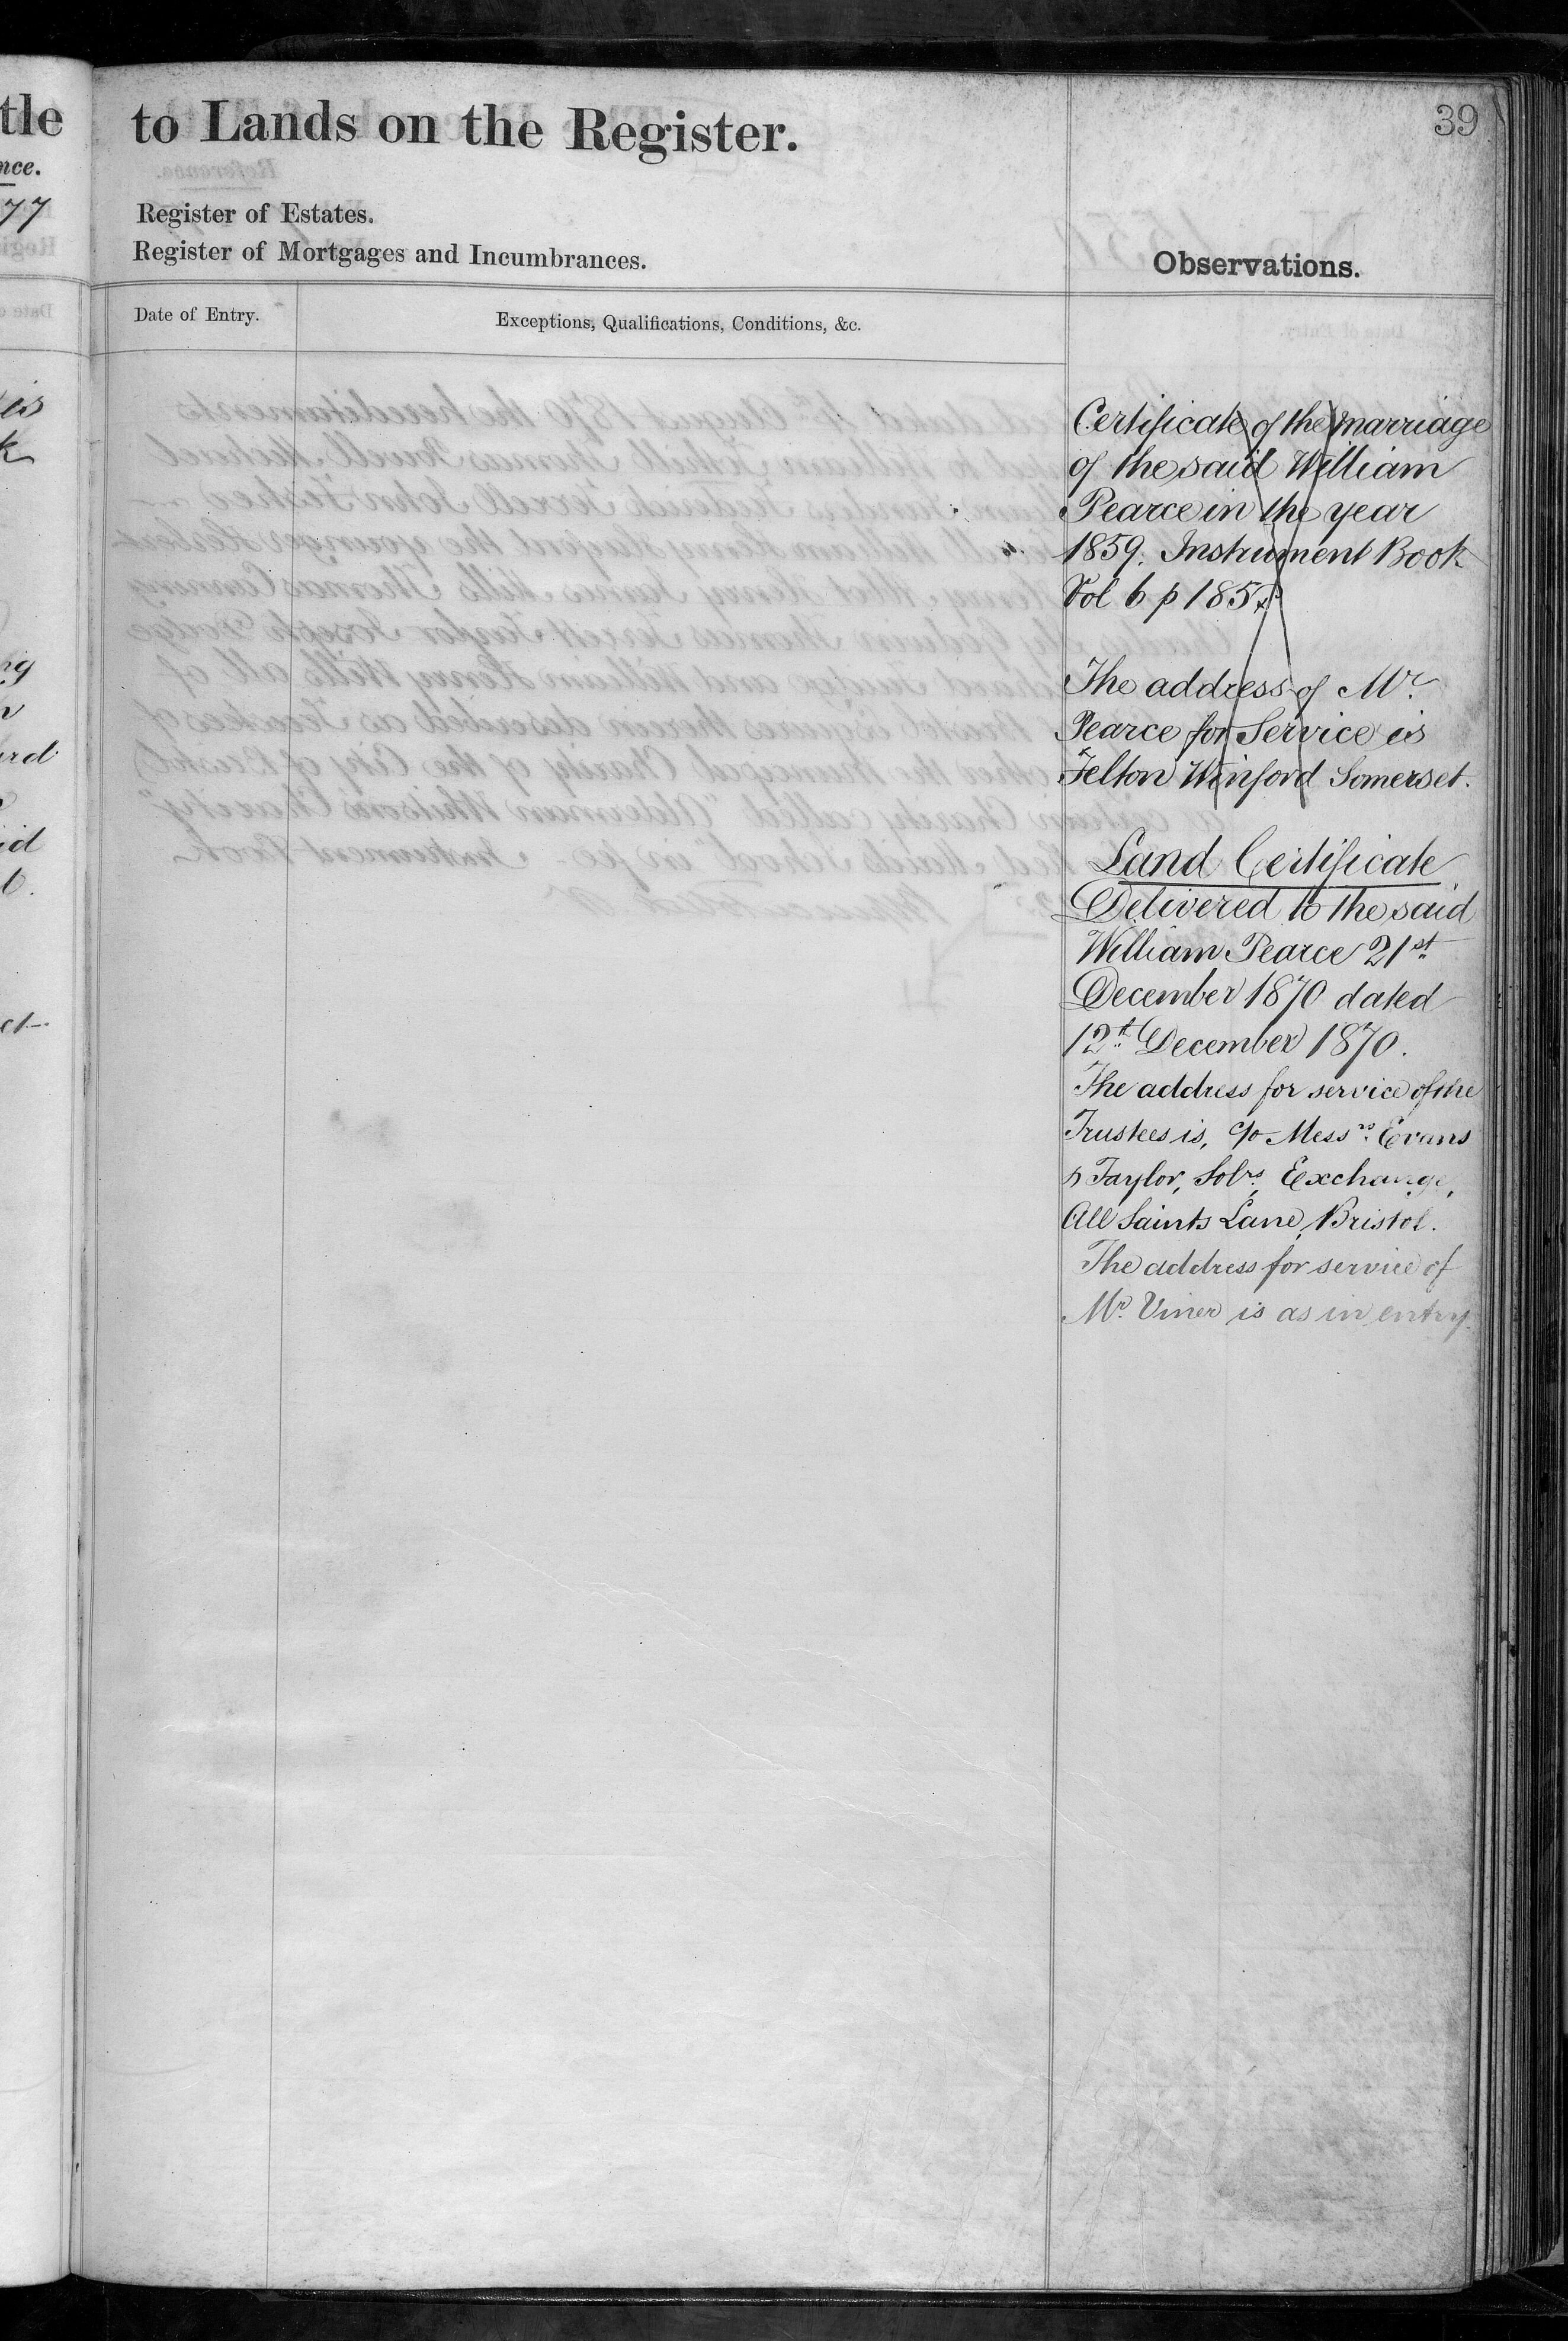 tle
nce.
77
to Lands on the Register.
39
Register of Estates.
Register of Mortgages and Incumbrances.
Observations.
Date of Entry.
Exceptions, Qualifications, Conditions, &c.
Certificate of the marriage
of the said William
Pearce in the year
1859. Instrument Book
Vol 6 p 185
The address of Mr.
Pearce for Service is
Felton Winford Somerset.
Land Certificate
Delivered to the said
William Pearce 21st
December 1870 dated
12th December 1870.
The address for service of the
Trustees is, c/o Messrs. Evans
& Taylor, Solrs., Exchange,
All Saints Lane, Bristol.
The address for service of
Mr. Viner is as in entry.